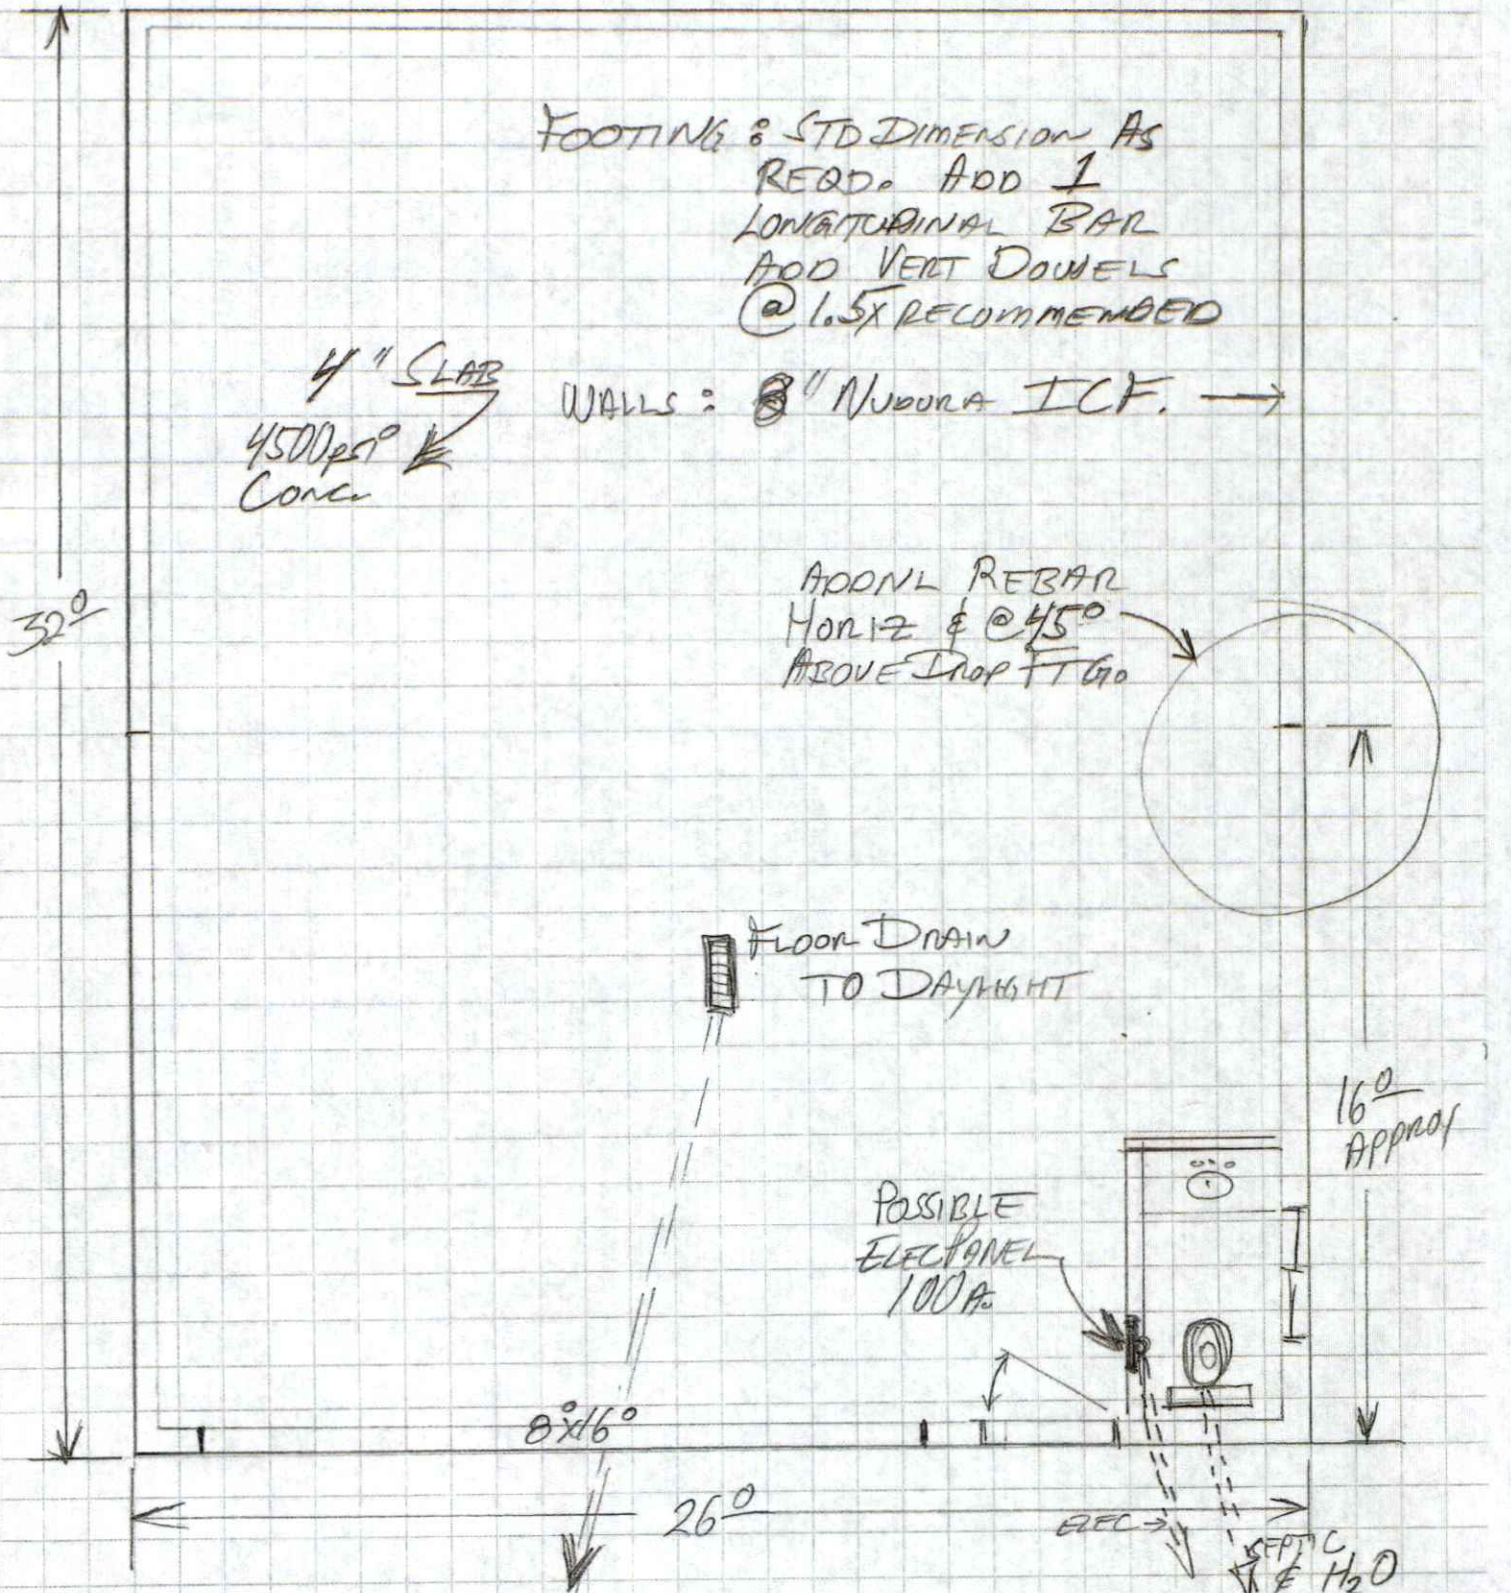 FOOTING: STD DIMENSION AS
REQD. ADD 1
LONGITUDINAL BAR
ADD VERT DOWELS
@ 1.5X RECOMMENDED
4" SLAB
4500psi
CONC.
WALLS: 8" NUDURA ICF.
ADDNL REBAR
HORIZ & @45°
ABOVE DROP FTG.
32⁰
FLOOR DRAIN
TO DAYLIGHT
16⁰
APPROX
POSSIBLE
ELEC PANEL
100A.
8⁰x16⁰
26⁰
ELEC
SEPTIC
& H₂O